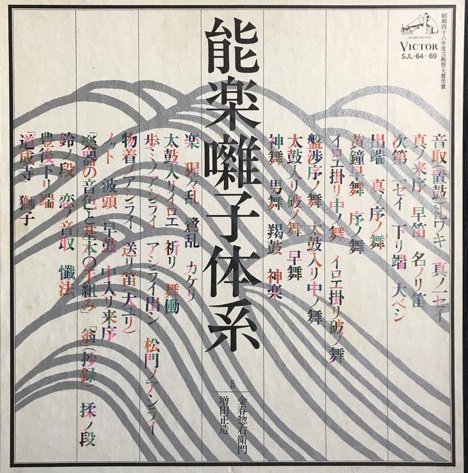 昭和四十八年度芸術祭大賞受賞
VICTOR
SJL-64~69
能楽囃子体系
音取置鼓 礼ワキ 真ノ一セイ
真ノ来序 早笛 名ノリ笛
次第 一セイ 下り端 大ベシ
出端 真ノ序ノ舞
黄鐘早舞 序ノ舞
イロエ掛り中ノ舞 イロエ掛り破ノ舞
盤渉序ノ舞 太鼓入り中ノ舞
太鼓入り破ノ舞 早舞
神舞 男舞 羯鼓 神楽
楽 猩々乱 鷺乱 カケリ
太鼓入りイロエ 祈り 舞働
歩ミノアシライ アシライ出シ 松門ノアシライ
物着ノアシライ 送り笛(大ユリ)
ノット 波頭 早鼓 中入り来序
「楽器の音色と基本の手組み」 翁(抄録) 揉ノ段
鈴ノ段 恋ノ音取 懺法
豊後下り端
道成寺 獅子
金春惣右衛門
増田正造